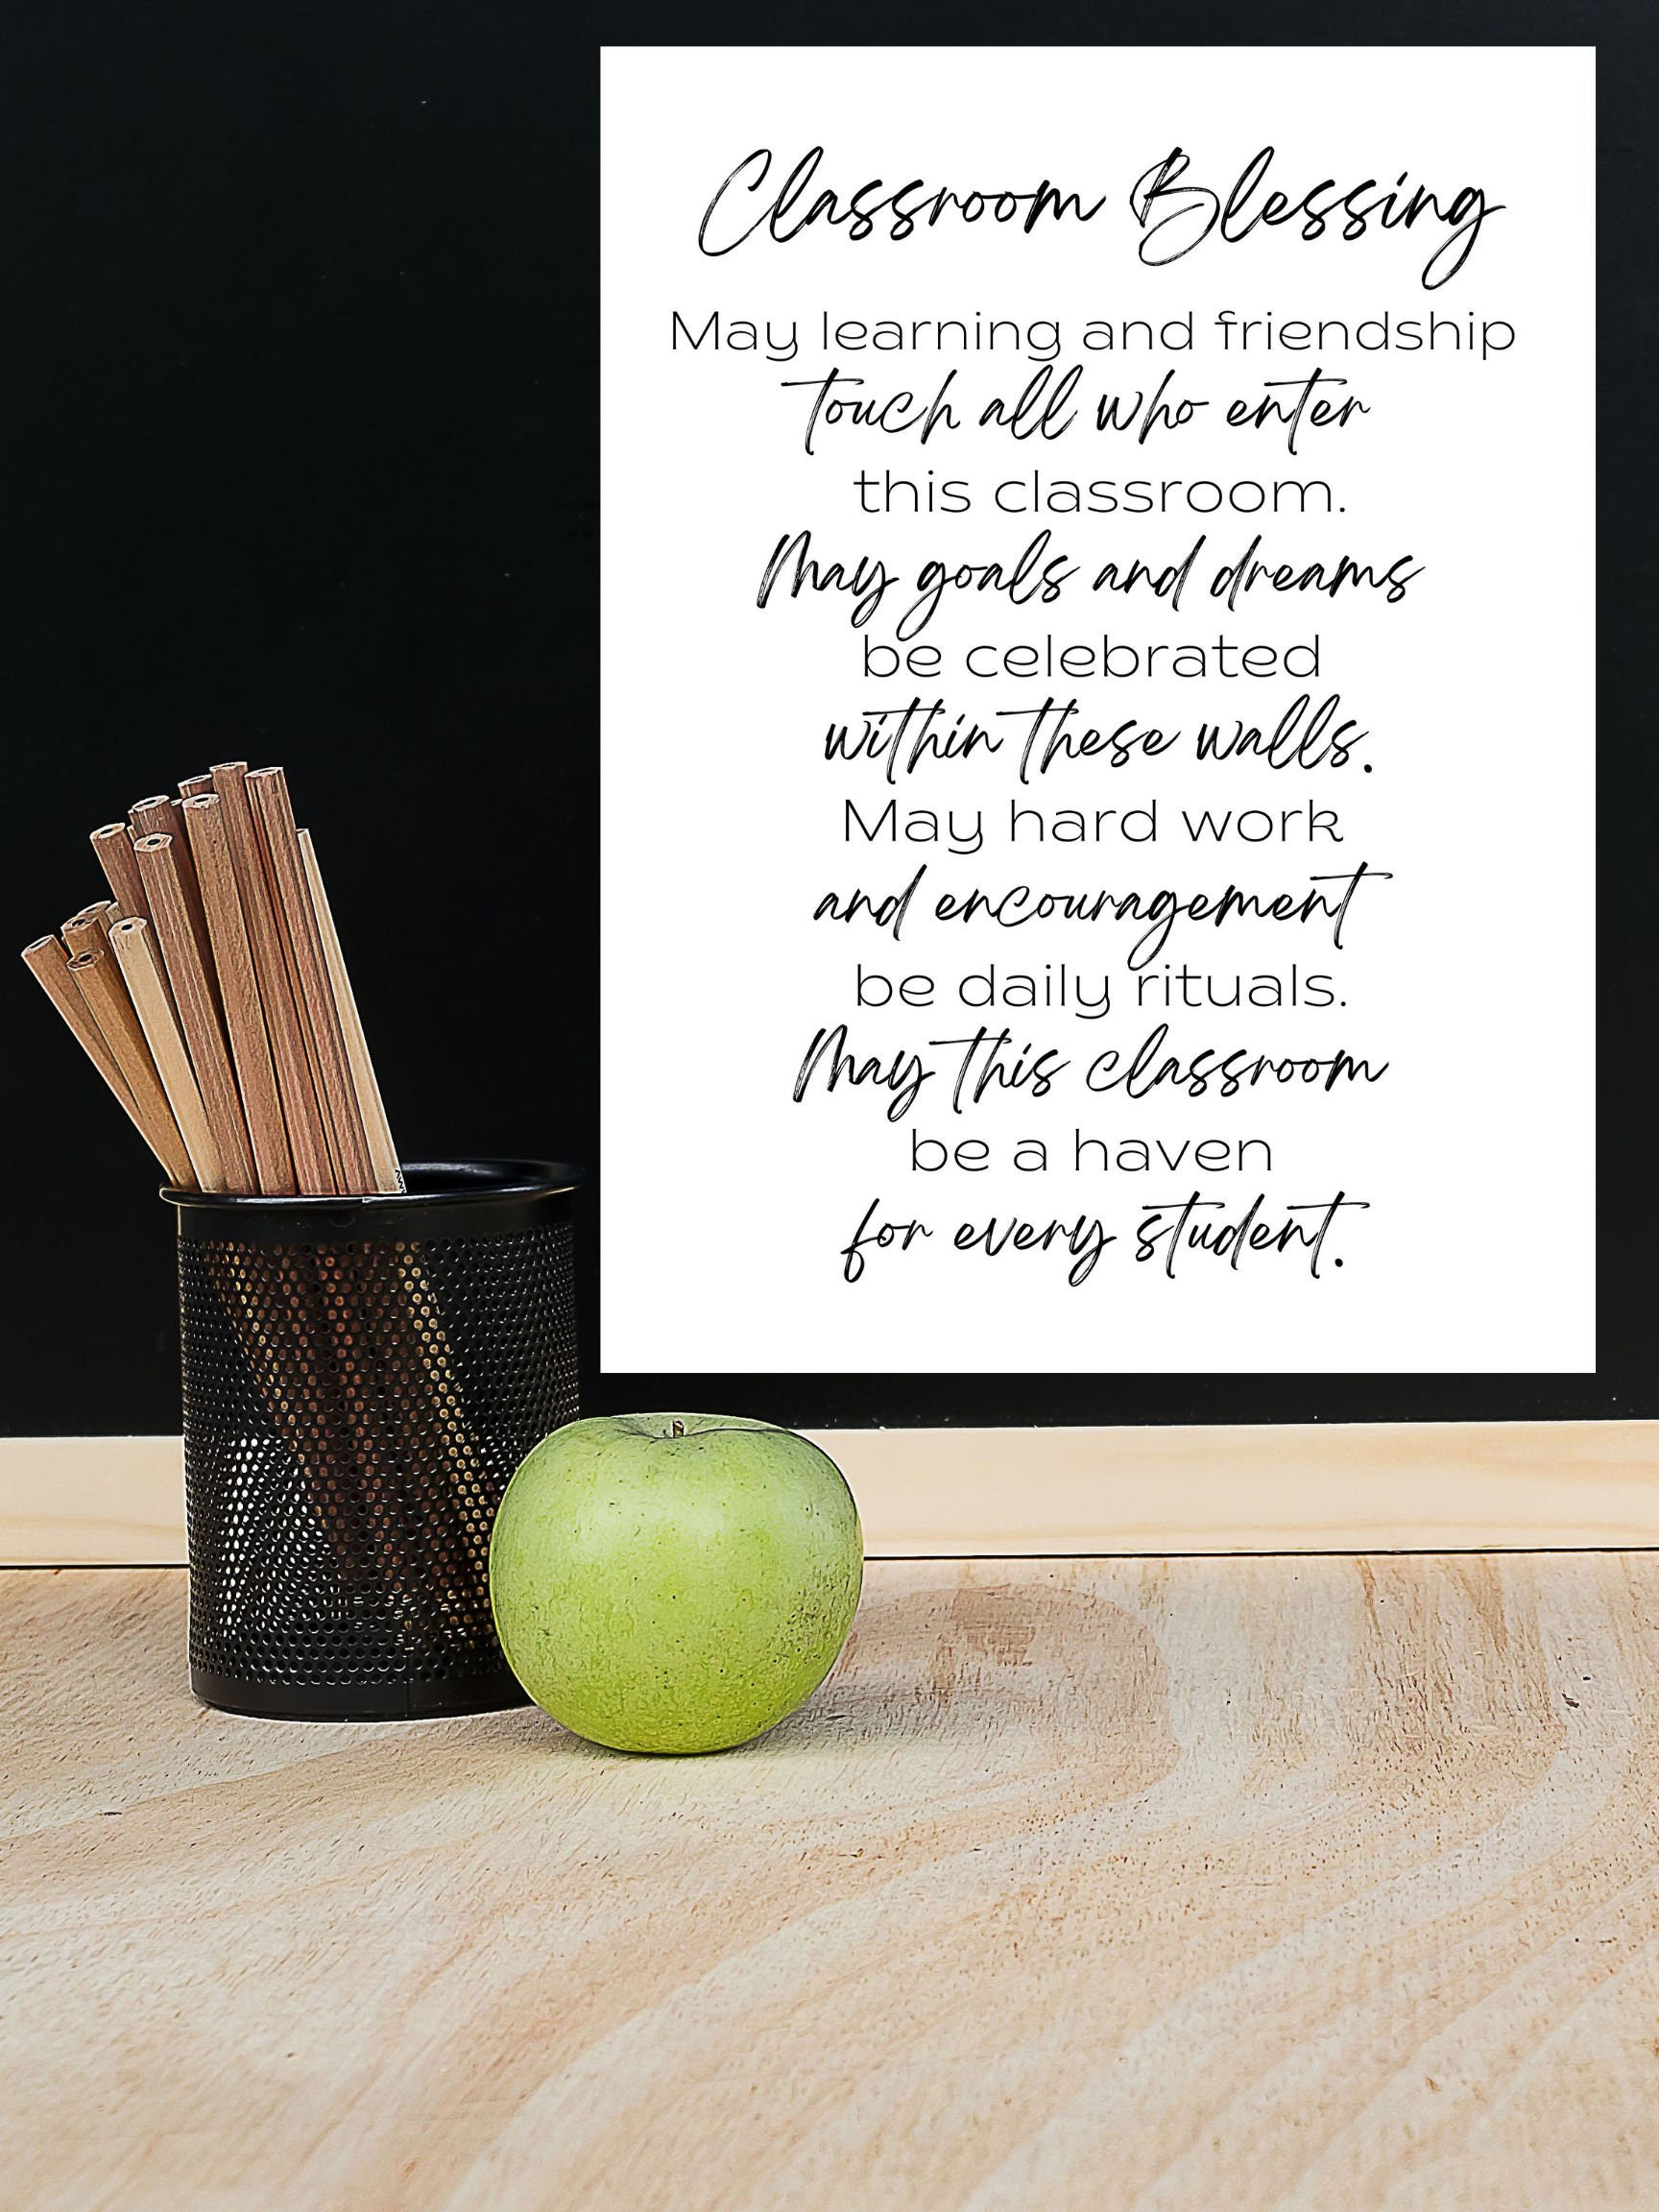 Classroom Blessing
May learning and friendship
touch all who enter
this classroom.
May goals and dreams
be celebrated
within these walls.
May hard work
and encouragement
be daily rituals.
May this classroom
be a haven
for every student.